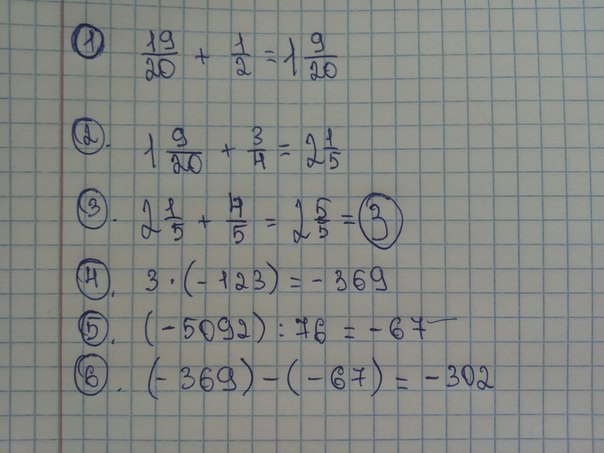 ① 19/20 + 1/2 = 1 9/20
②. 1 9/20 + 3/4 = 2 1/5
③. 2 1/5 + 4/5 = 2 5/5 = 3
④. 3 · (-123) = -369
⑤. (-5092) : 76 = -67
⑥. (-369) - (-67) = -302